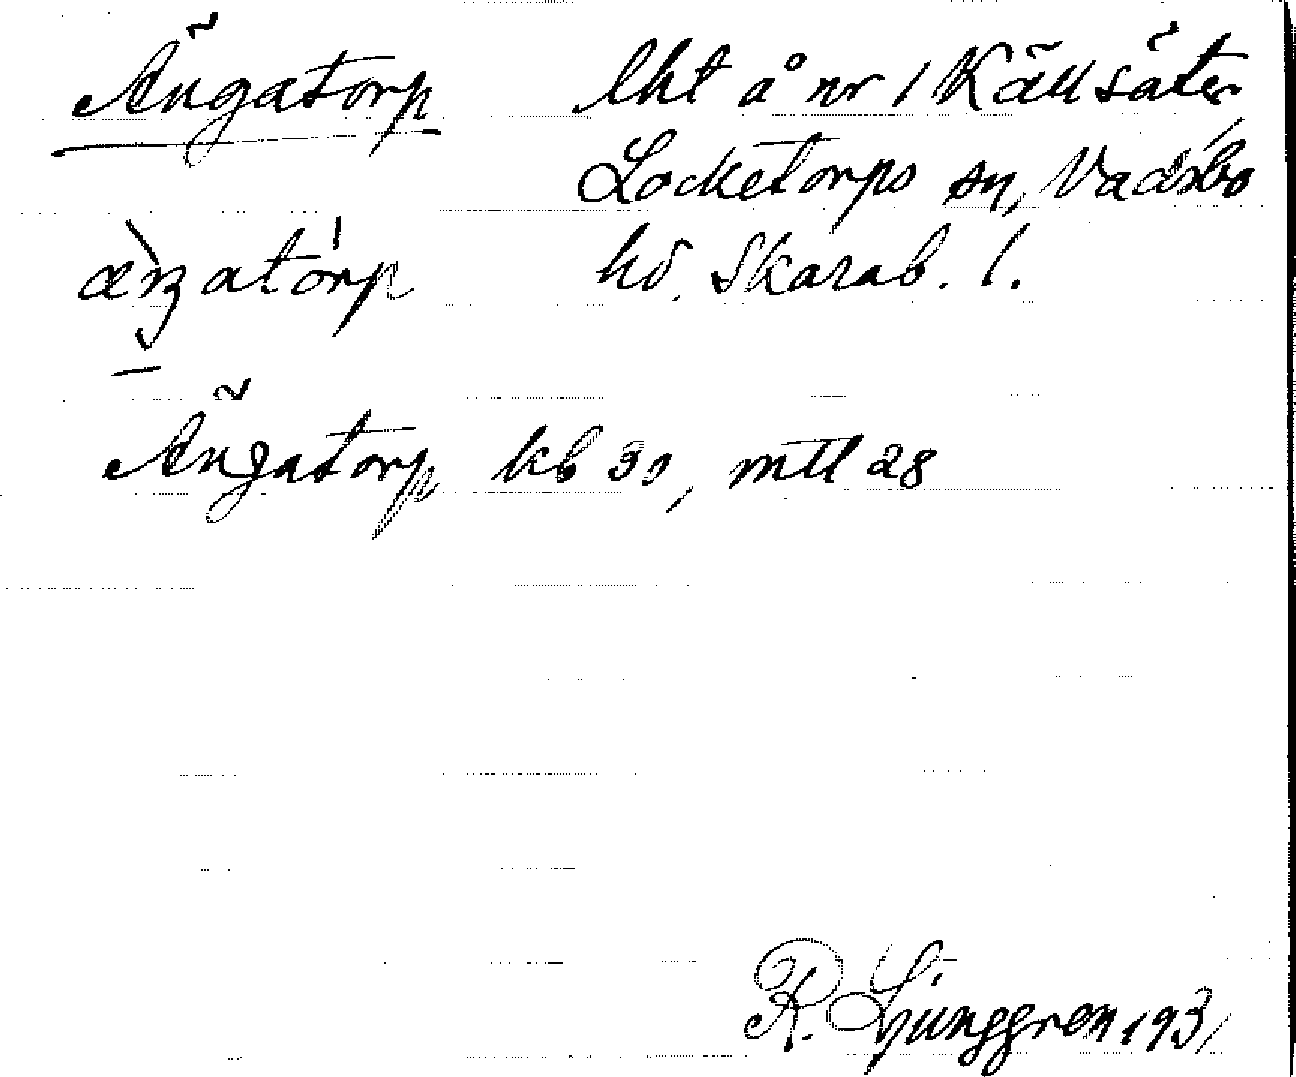 Ängatorp lht å nr 1 Källsäter
Locketorps sn, Vadsbo
hd. Skarab. l.
æŋatorp
Ängatorp kb 30, mtl 28
R. Ljunggren 1931